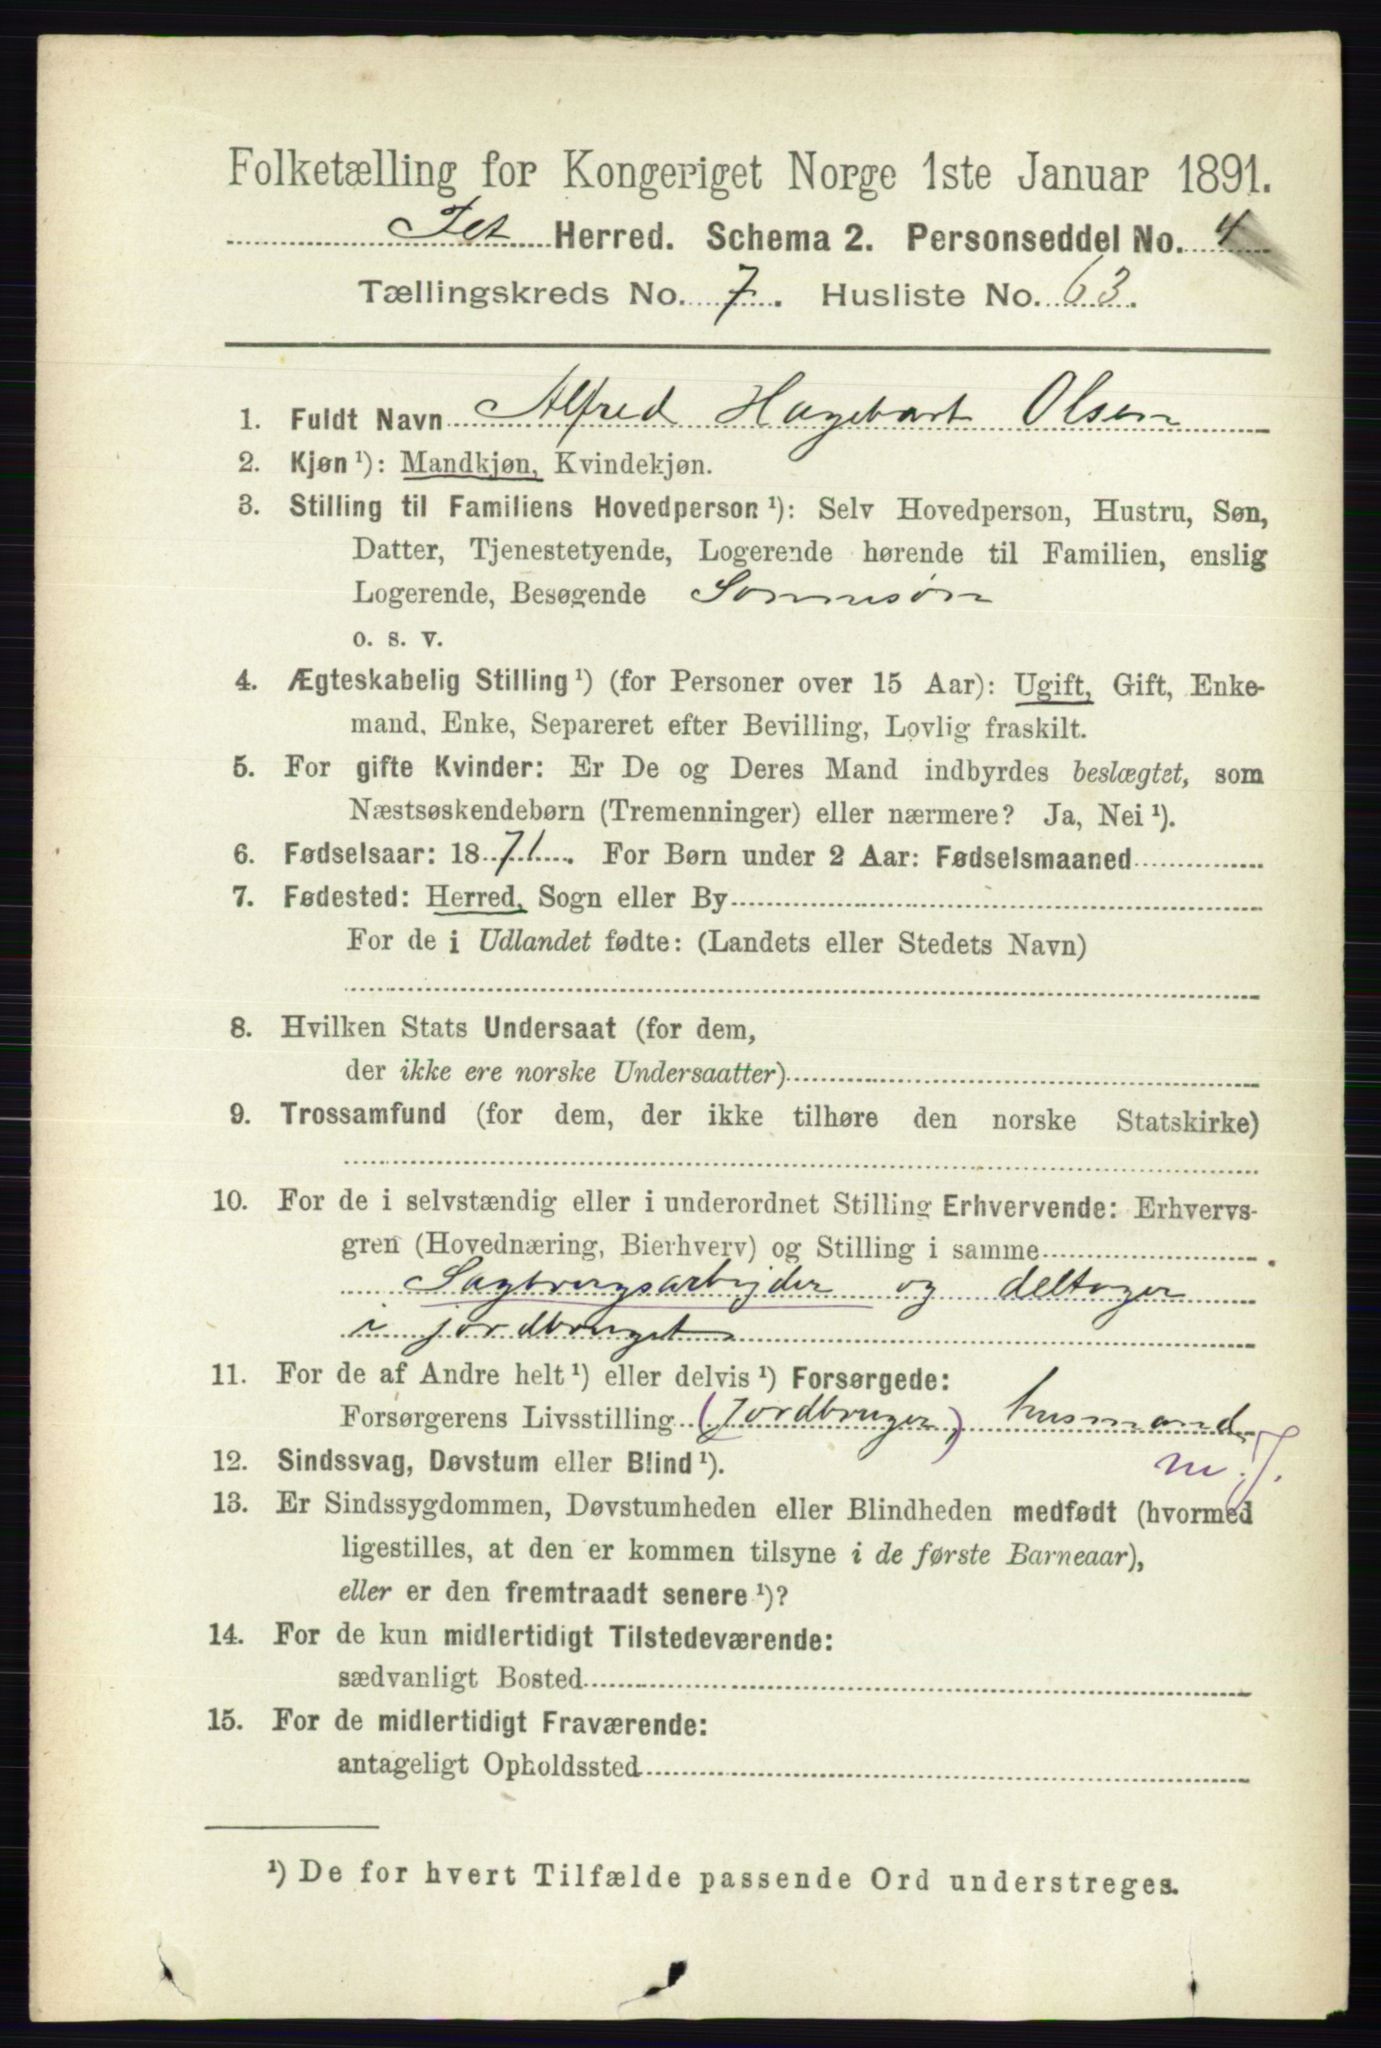 Folketælling for Kongeriget Norge 1ste Januar 1891.
Fet Herred. Schema 2. Personseddel No. 4
Tællingskreds No. 7. Husliste No. 63.
1. Fuldt Navn Alfred Hagebart Olsen
2. Kjøn ¹): Mandkjøn, Kvindekjøn.
3. Stilling til Familiens Hovedperson ¹): Selv Hovedperson, Hustru, Søn,
Datter, Tjenestetyende, Logerende hørende til Familien, enslig
Logerende, Besøgende Sønnesøn
o. s. v.
4. Ægteskabelig Stilling ¹) (for Personer over 15 Aar): Ugift, Gift, Enke-
mand, Enke, Separeret efter Bevilling, Lovlig fraskilt.
5. For gifte Kvinder: Er De og Deres Mand indbyrdes beslægtet, som
Næstsøskendebørn (Tremenninger) eller nærmere? Ja, Nei ¹).
6. Fødselsaar: 1871. For Børn under 2 Aar: Fødselsmaaned
7. Fødested: Herred, Sogn eller By
For de i Udlandet fødte: (Landets eller Stedets Navn)
8. Hvilken Stats Undersaat (for dem,
der ikke ere norske Undersaatter)
9. Trossamfund (for dem, der ikke tilhøre den norske Statskirke)
10. For de i selvstændig eller i underordnet Stilling Erhvervende: Erhvervs-
gren (Hovednæring, Bierhverv) og Stilling i samme
Sagbrugsarbejder og deltager
i jordbruget
11. For de af Andre helt ¹) eller delvis ¹) Forsørgede:
Forsørgerens Livsstilling (Jordbruger) husmand
m. J.
12. Sindssvag, Døvstum eller Blind ¹).
13. Er Sindssygdommen, Døvstumheden eller Blindheden medfødt (hvormed
ligestilles, at den er kommen tilsyne i de første Barneaar),
eller er den fremtraadt senere ¹)?
14. For de kun midlertidigt Tilstedeværende:
sædvanligt Bosted
15. For de midlertidigt Fraværende:
antageligt Opholdssted
¹) De for hvert Tilfælde passende Ord understreges.